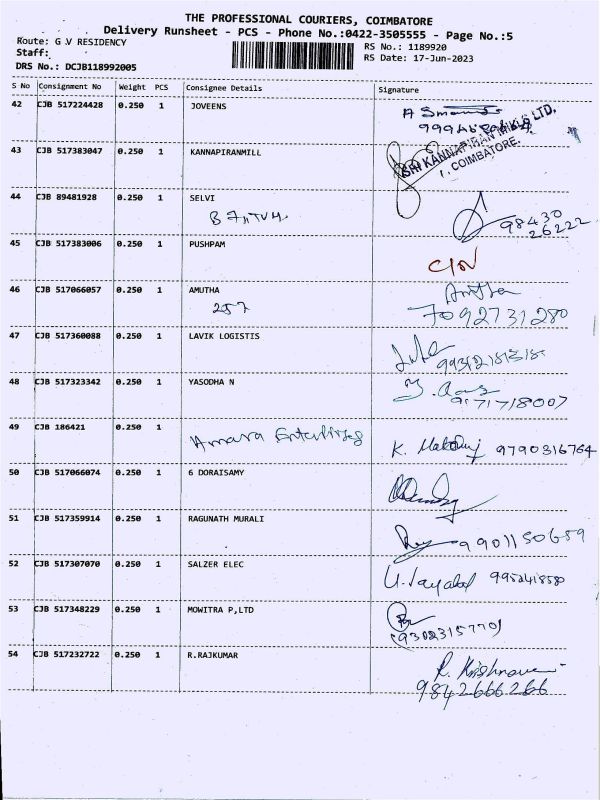 THE PROFESSIONAL COURIERS, COIMBATORE
Delivery Runsheet - PCS - Phone No.:0422-3505555 - Page No.:5
Route: G V RESIDENCY
RS No.: 1189920
Staff:
RS Date: 17-Jun-2023
DRS No.: DCJB118992005
S No Consignment No Weight PCS Consignee Details Signature
42 CJB 517224428 0.250 1 JOVEENS
43 CJB 517383047 0.250 1 KANNAPIRANMILL
SRI KANNAPIRAN MILLS LTD.
COIMBATORE.
44 CJB 89481928 0.250 1 SELVI
98430
26222
45 CJB 517383006 0.250 1 PUSHPAM
46 CJB 517066057 0.250 1 AMUTHA Amutha
257 7092731280
47 CJB 517360088 0.250 1 LAVIK LOGISTIS
48 CJB 517323342 0.250 1 YASODHA N
9171718007
49 CJB 186421 0.250 1
Amara Enterprises K. 9790316764
50 CJB 517066074 0.250 1 6 DORAISAMY
51 CJB 517359914 0.250 1 RAGUNATH MURALI
9901150659
52 CJB 517307070 0.250 1 SALZER ELEC
53 CJB 517348229 0.250 1 MOWITRA P,LTD
54 CJB 517232722 0.250 1 R.RAJKUMAR
R. Krishnaveni
9842666266